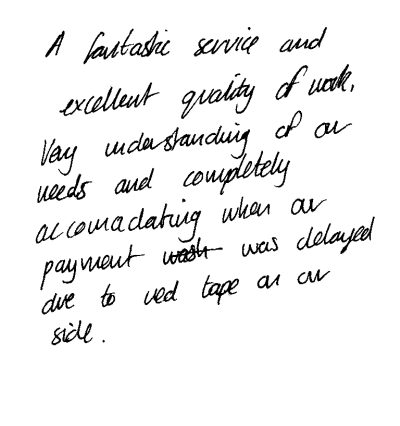 A fantastic service and
excellent quality of work.
Very understanding of our
needs and completely
accomadating when our
payment was delayed
due to red tape on our
side.